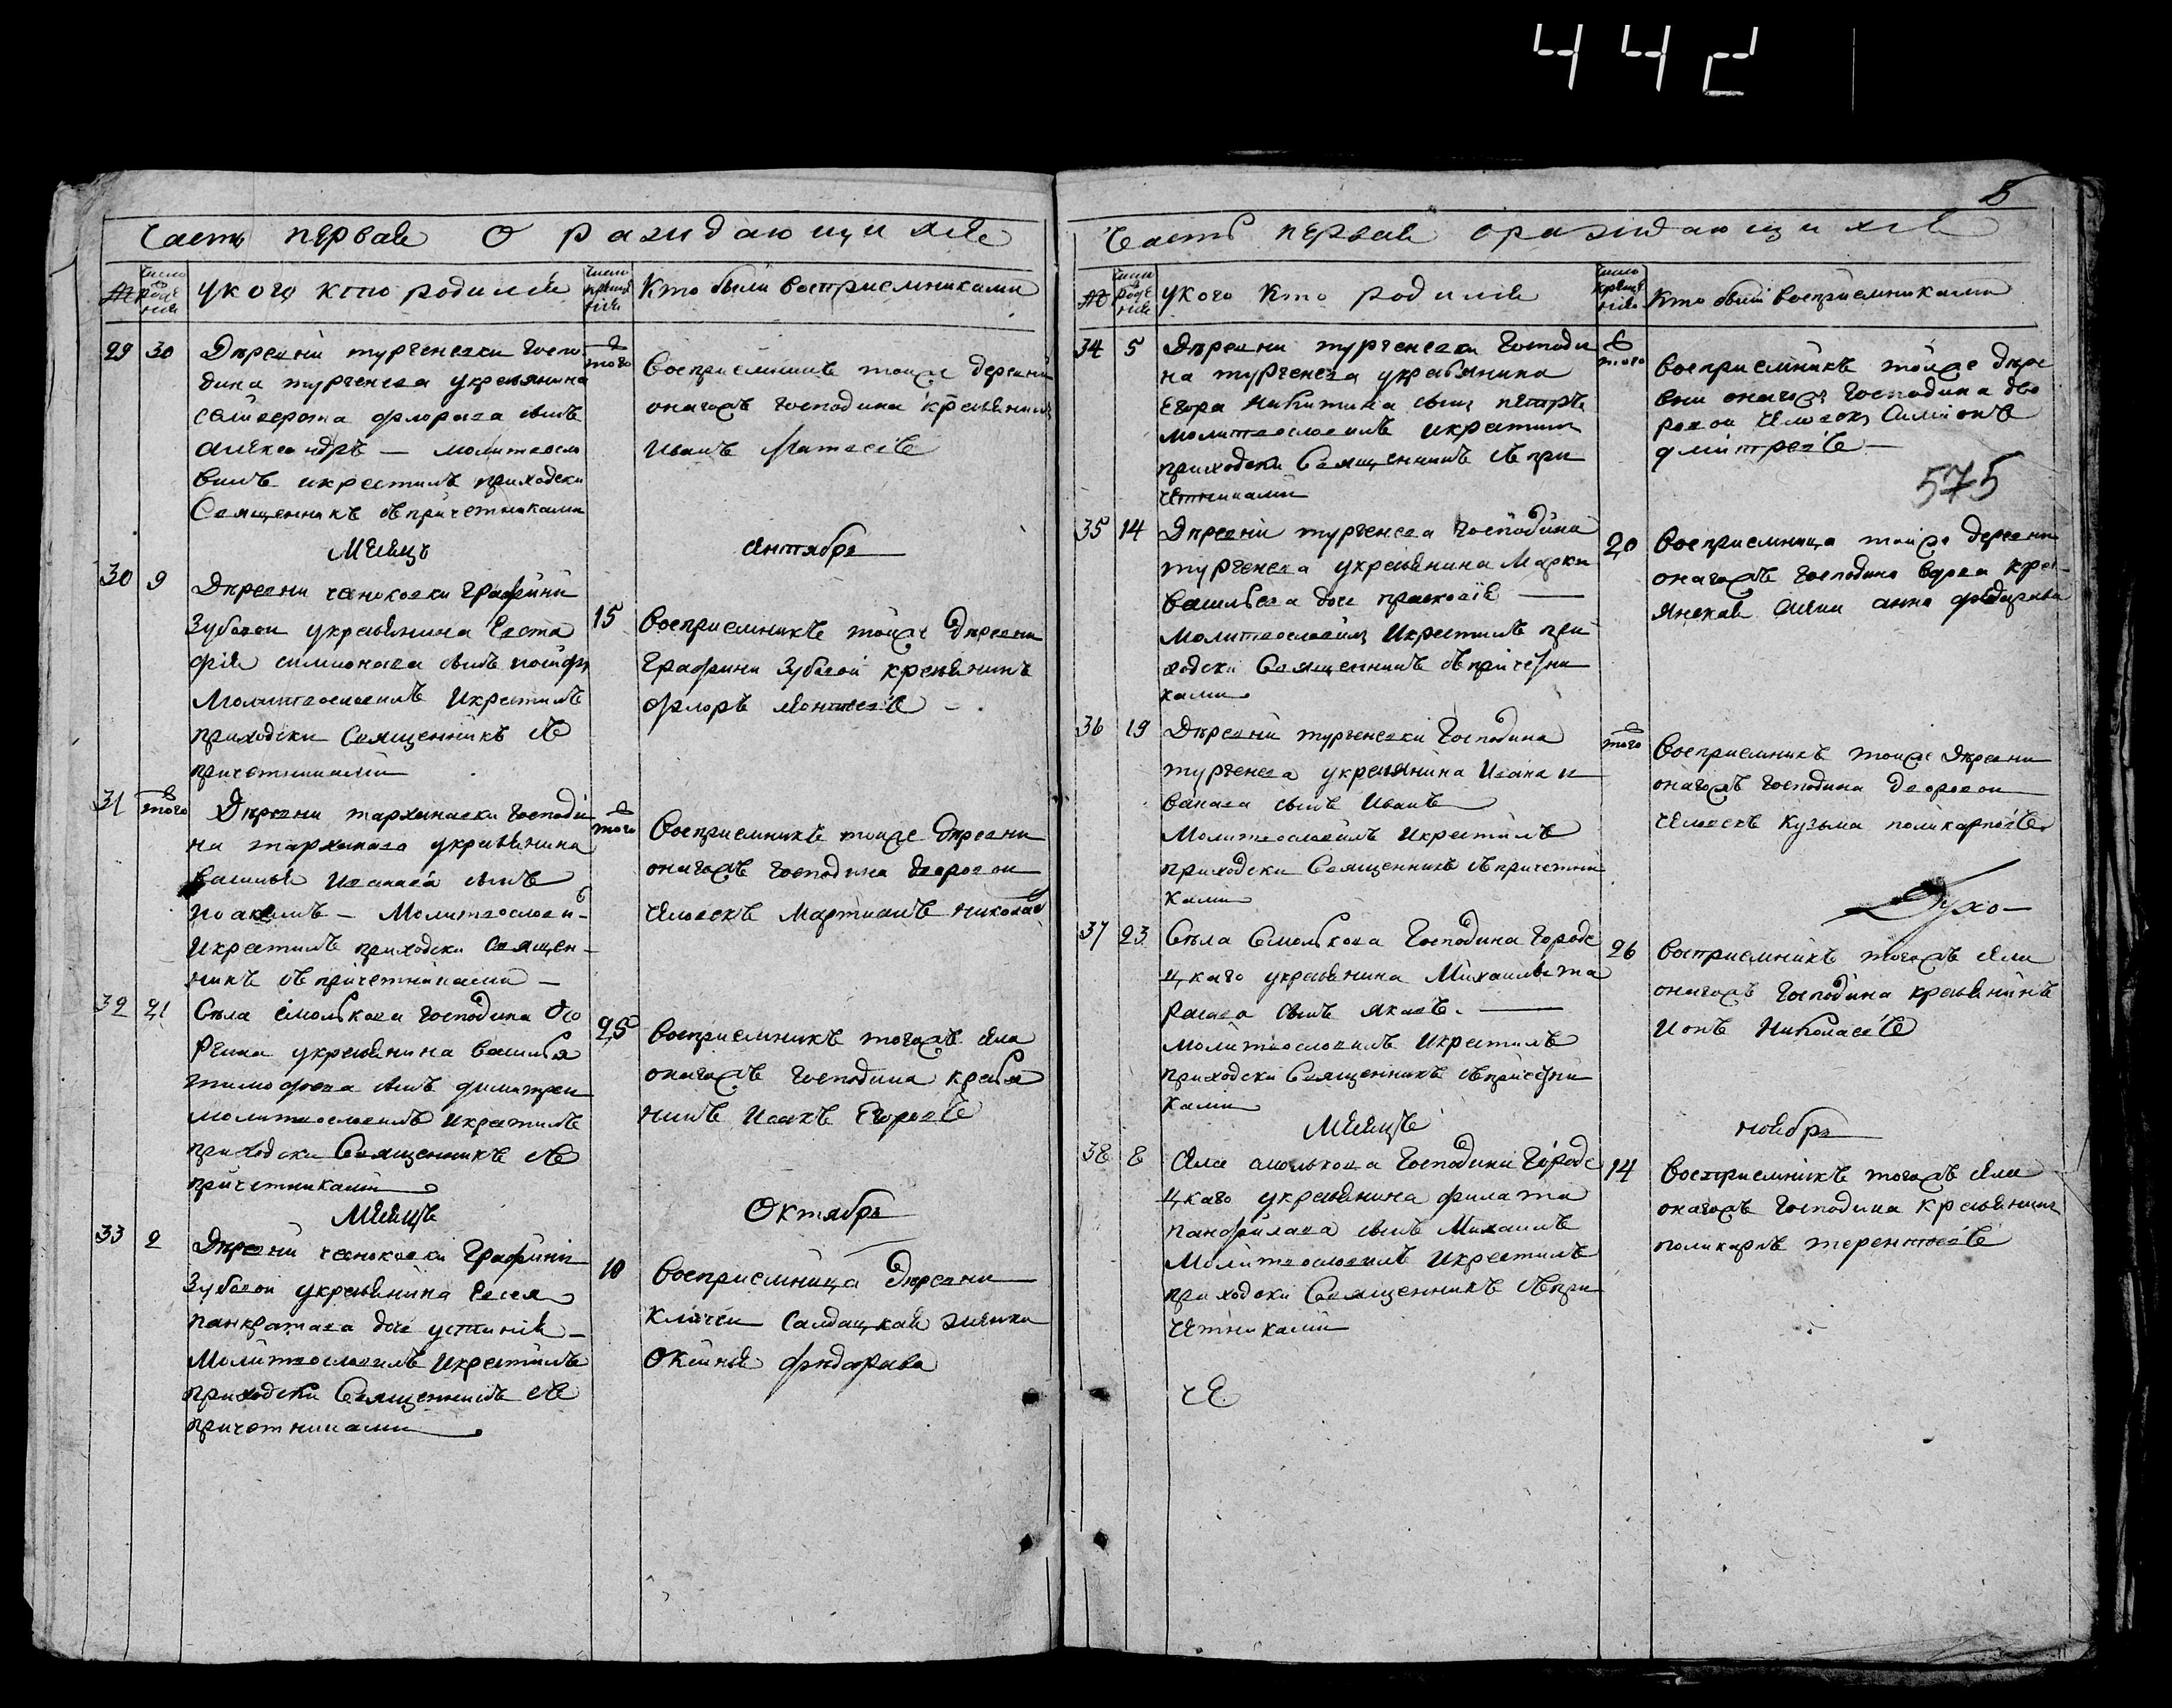 442
часть первая О раждающихся
№
число рожде ния
у кого кто родился
число креще ния
Кто были восприемниками
29 30 Деревни тургеневки госпо
дина тургенева у крестьянина
селиверста флорова сынъ
александръ — молитвосло
вилъ и крестилъ приходски
Священникъ съ причетниками
того
восприемникъ тойже деревни
онагожъ господина крестьянинъ
иванъ Матвеевъ
Месяцъ сентябрь
30 9 Деревни чепоковки графини
Зубовои у крестьянина Евста
фия симионава сынъ
Молитвословилъ и крестилъ
приходски Священникъ съ
причетниками
15 восприемникъ тойже деревни
Графини Зубовой крестьянинъ
флоръ леонтьевъ
31 того Деревни тархановки господи
на тарханова у крестьянина
василья иванава сынъ
иоакимъ — Молитвослови
и крестилъ приходски священ
никъ съ причетниками
того восприемникъ тойже деревни
онагожъ господина дворовои
человекъ Мартианъ николаевъ
32 21 Села смолькова господина
у крестьянина василья
тимофеева сынъ димитреи
молитвословилъ и крестилъ
приходски Священникъ съ
причетниками
25 восприемникъ тогожъ села
онагожъ господина крестья
нинъ Исакъ Егоровъ
Месяцъ Октябрь
33 2 Деревни чепоковки графини
Зубовои у крестьянина Евсея
панкратава дочь устиния
Молитвословилъ и крестилъ
приходски Священникъ съ
причетниками
10 восприемница деревни
Ключеи салдацкая женка
Оксинья федорава
5
часть первая о раждающихся
№
число рожде ния
у кого кто родился
число креще ния
кто были восприемниками
34 5 Деревни тургеневки господи
на тургенева у крестьянина
Егора никитина сынъ петръ
молитвословилъ и крестилъ
приходски Священникъ съ при
четниками
того восприемникъ тойже дере
вни онагожъ господина дво
ровои человекъ Симионъ
дмитревъ
575
35 14 Деревни тургенева господина
тургенева у крестьянина Марки
васильева дочь прасковия
молитвословилъ и крестилъ при
ходски Священникъ съ причетни
ками
20 восприемница тойже деревни
онагожъ господина вдова крес
янская анна федарава
36 19 Деревни тургеневки господина
тургенева у крестьянина Ивана и
ванава сынъ Иванъ
Молитвословилъ и крестилъ
приходски Священникъ съ причетни
ками
того восприемникъ тойже деревни
онагожъ господина дворовои
человекъ Кузьма поликарповъ
Духо
37 23 Села Смолькова господина городе
цкаго у крестьянина Михаилы та
расава сынъ яковъ.
молитвословилъ и крестилъ
приходски Священникъ съ причетни
ками
26 восприемникъ тогожъ села
онагожъ господина крестьянинъ
Ионъ николаевъ
Месяцъ ноябрь
38 8 Села смолькова господина городе
цкаго у крестьянина филата
панфилава сынъ Михаилъ
Молитвословилъ и крестилъ
приходски Священникъ съ при
четниками
14 восприемникъ тогожъ села
онагожъ господина крестьянинъ
поликарпъ терентьевъ